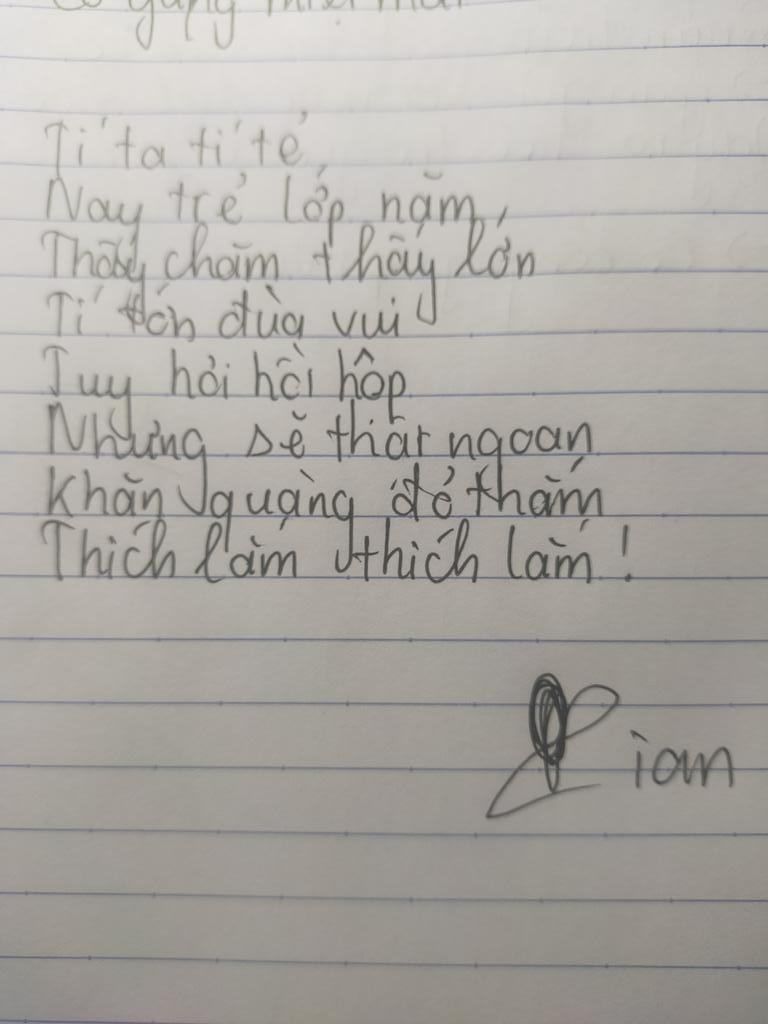 Tí ta tí te,
Nay trẻ lớp năm,
Thấy chăm thấy lớn
Tí tởn đùa vui
Tuy hơi hồi hộp
Nhưng sẽ thật ngoan
Khăn quàng đỏ thắm
Thích lắm thích lắm!
Lian